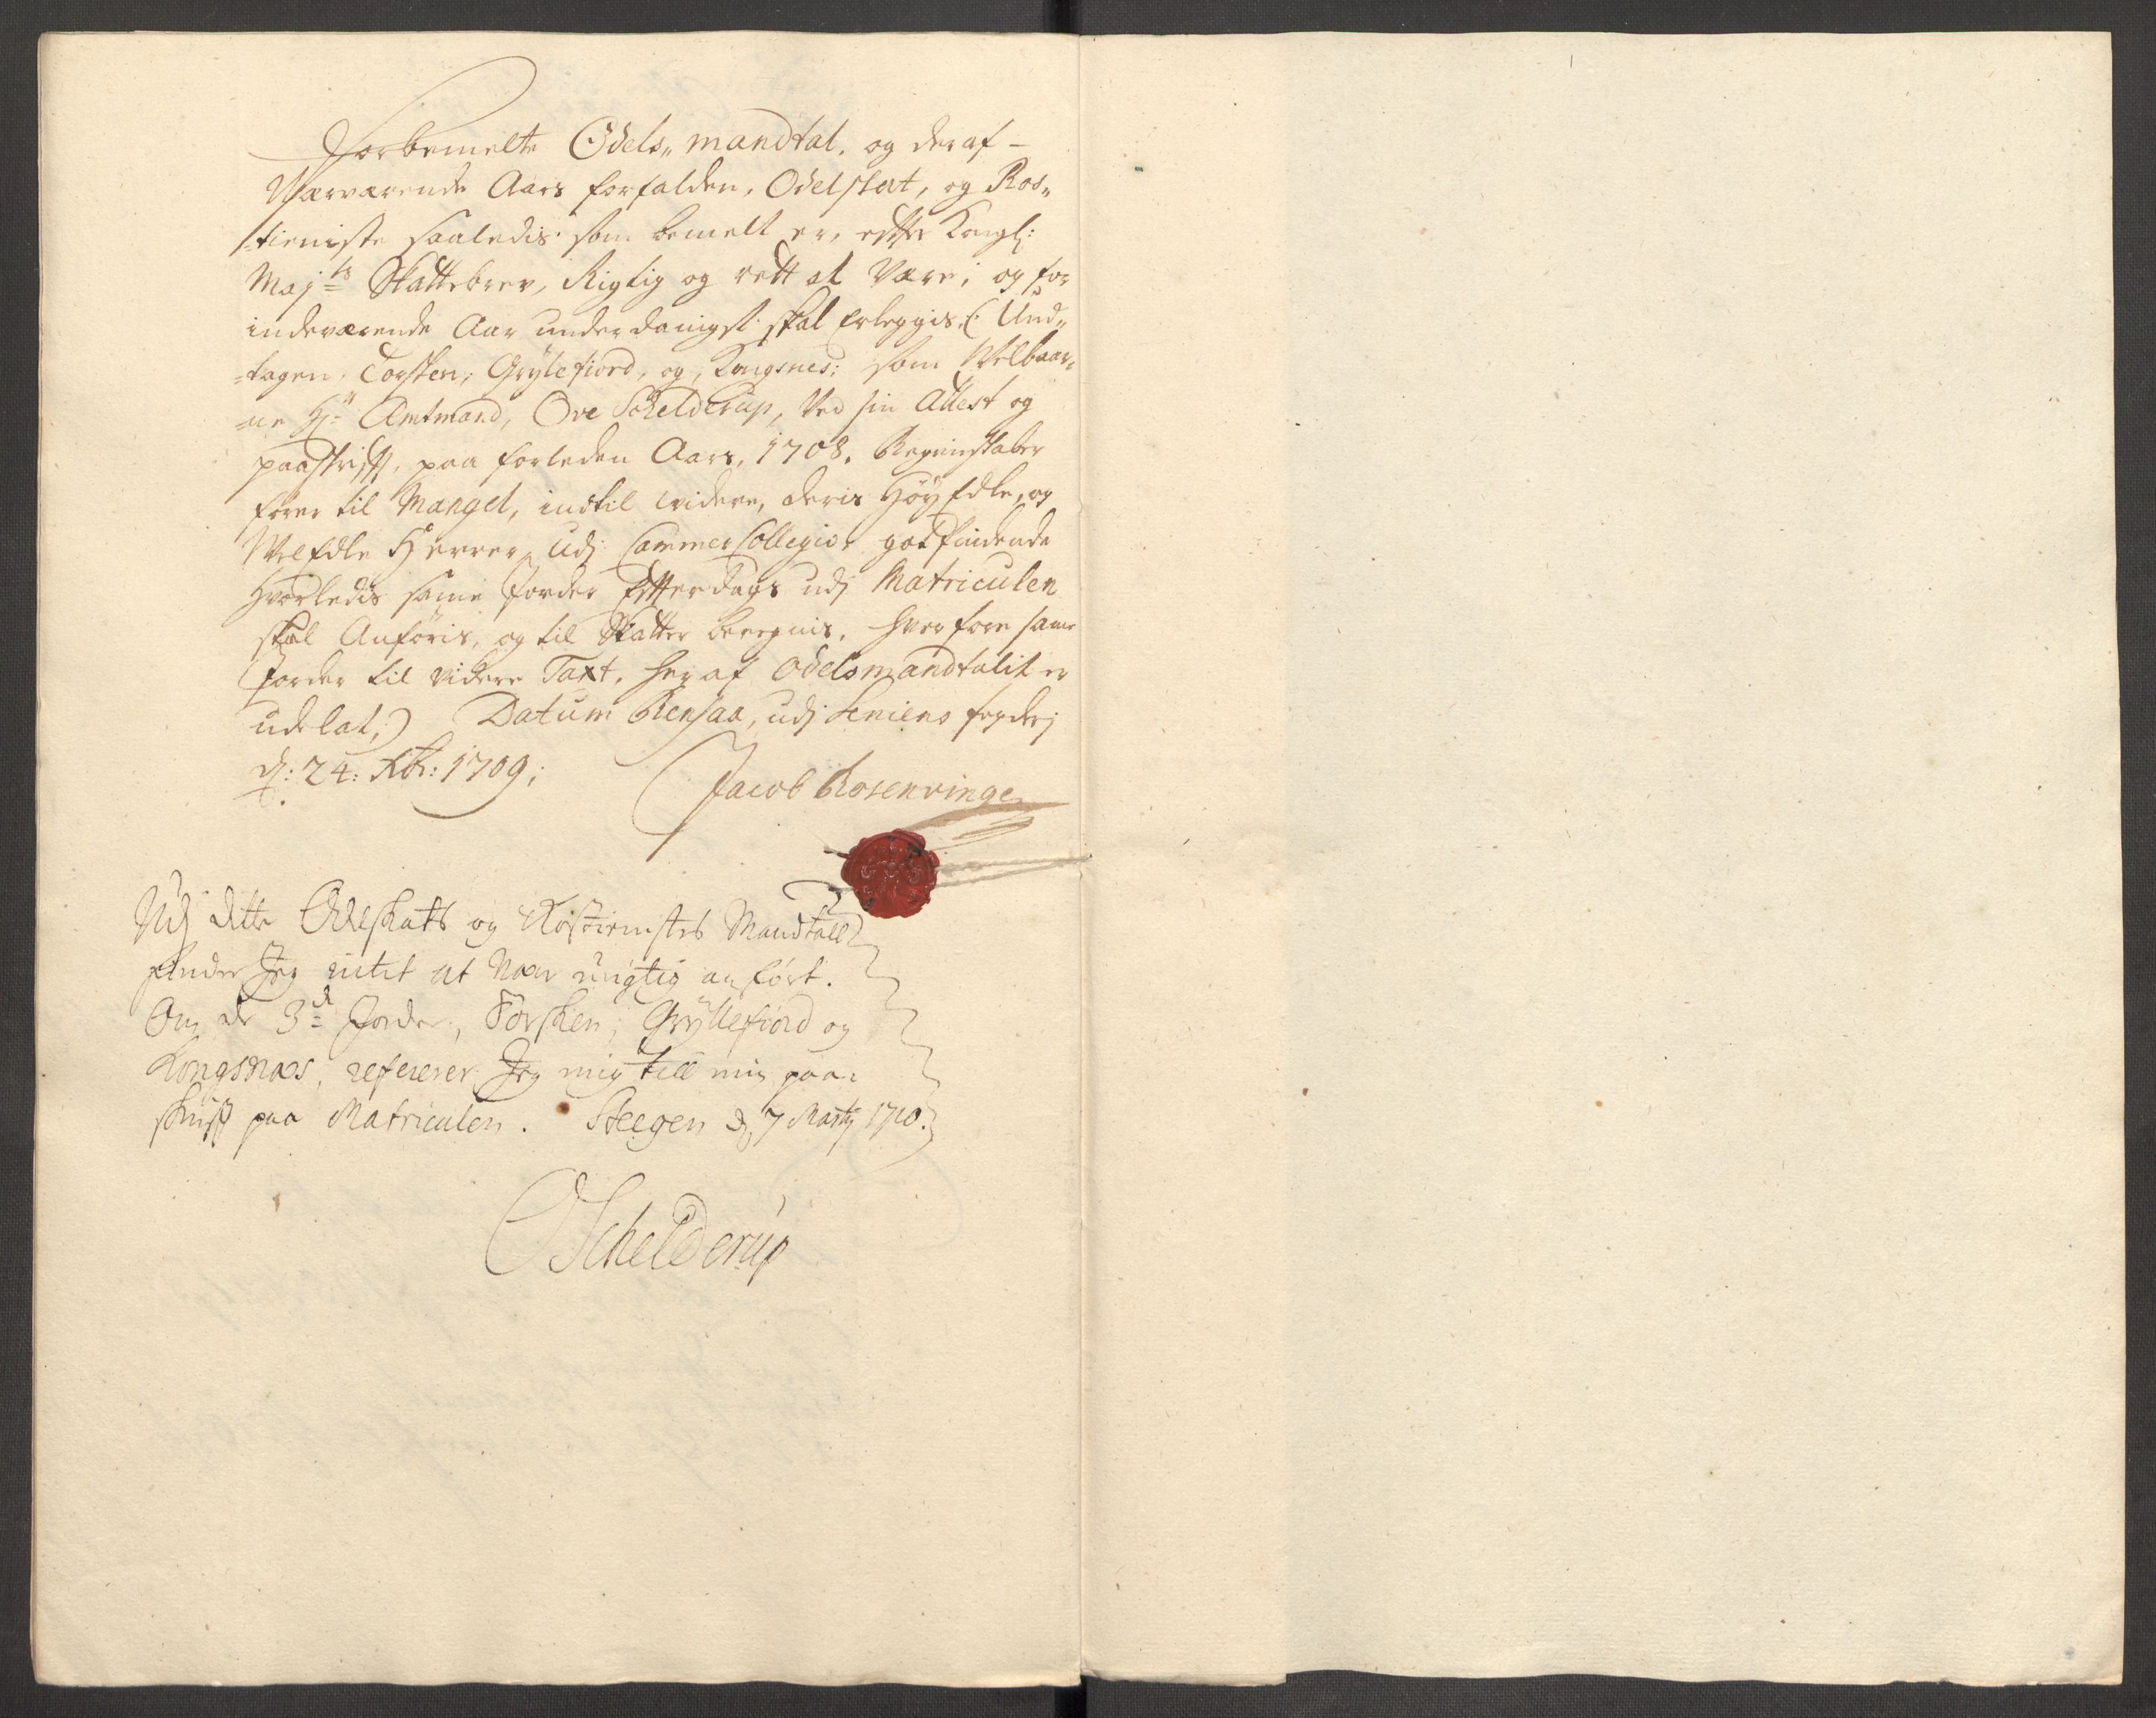 Forbemelte Odels„ mandtal, og der af –
Nærværende Aars forfalden, Odelskat, og Ros„
tieniste saaledis som bemelt er, effter Kongl:
Maj:ts Skattebrev, Rigtig og rett at Være; og for
indeværende Aar underdanigst skal Erleggis. (: Und„
„tagen, Torsken, Grylefiord, og, Kongsnes: som Welbaar„
„ne Hr: Amtmand, Ove Schelderup, Ved sin Attest og
paaskrifft, paa forleden Aars, 1708. Regenskaber
fører til Mangel, indtil widere, deris Høy Edle, og
WelEdle Herrer, Udj Cammer Collegio, godtfindende
Hvorledis samme Jorder Effterdags udj Matriculen
skal Anføris, og til Skatter beregnis. hvorfore samme
Jorder til videre Taxt, her af Odelsmandtalit er
udelat;) Datum Rensaa, udj Seniens fogderj
d: 24: Xbr: 1709;
Jacob Rosenvinge
Udj dette Odelskats og Rostienistes Mandtall
finder Jeg intet at Være urigtig anført.
Om de 3de Jorder, Torsken, Gryllefiord og
Kongsnæs, refererer Jeg mig till min paa-
skrifft paa Matriculen. Steegen d 7 Martj 1710.
OSchelderup